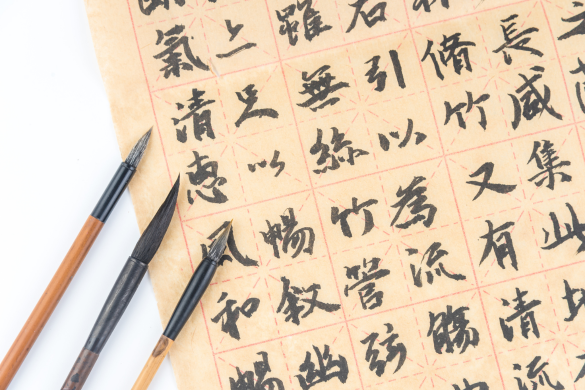 長咸集此
脩竹又有清流
右引以為流觴
雖無絲竹管絃
足以暢敘幽
氣清惠風和暢